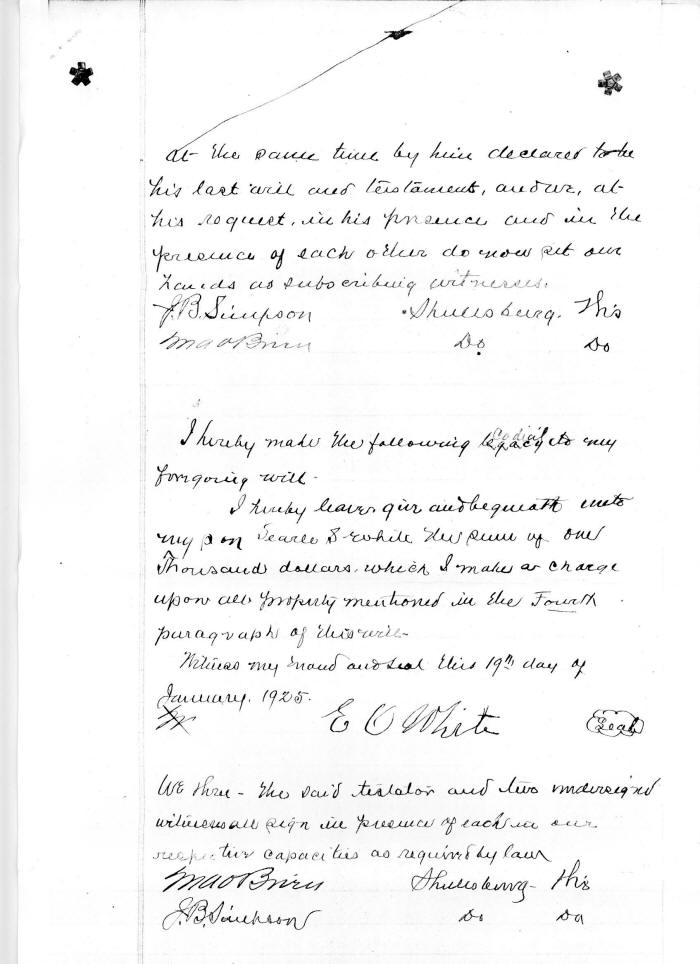 at the same time by him declared to be
his last will and testament, and we, at
his request, in his presence and in the
presence of each other do now set our
hands as subscribing witnesses.
J. B. Simpson Shullsburg. Wis
M A O'Brien Do Do
I hereby make the following codicil to my
foregoing will.
I hereby leave give and bequeath unto
my son Searle S White the sum of one
Thousand dollars. which I make a charge
upon all property mentioned in the Fourth
paragraph of this will-
Witness my hand and seal this 19th day of
January, 1925.
E O White (Seal)
We three - the said testator and two undersigned
witnesses all sign in presence of each in our
respective capacities as required by law
M A O'Brien Shullsburg - Wis
J. B. Simpson Do Do